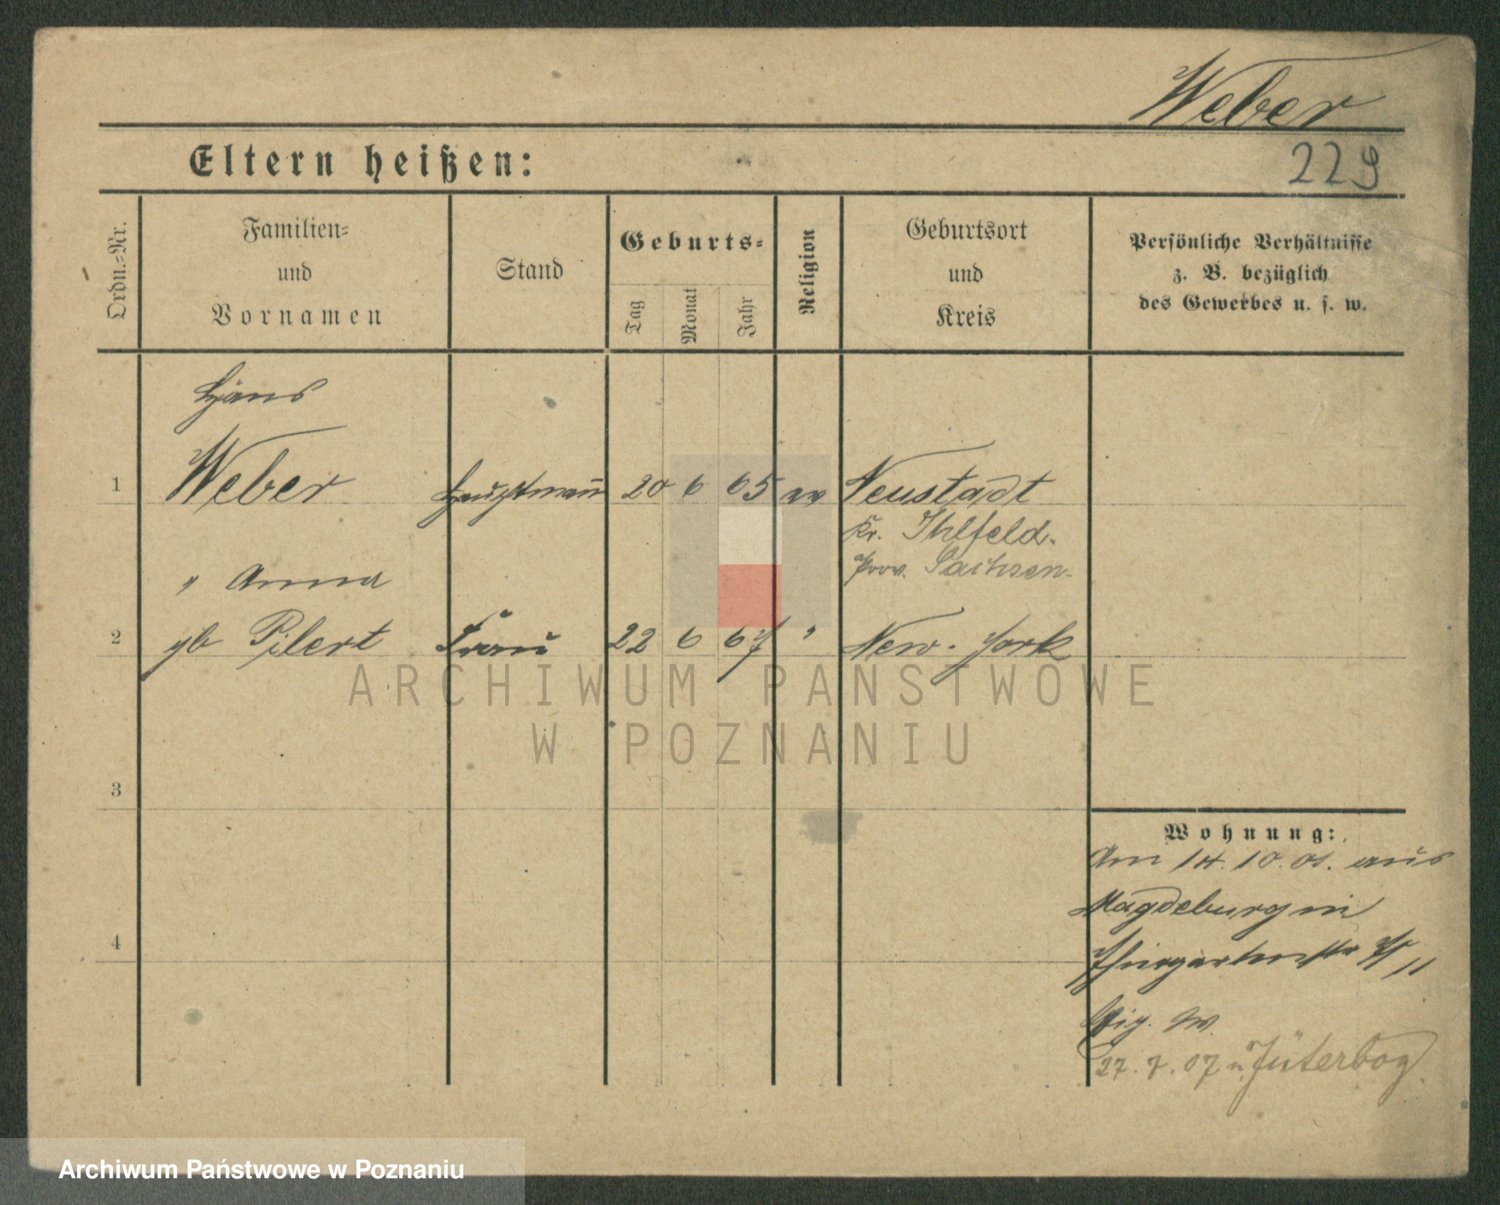 Weber
Eltern heißen:
229
Ordn.-Nr.
Familien-
und
Vornamen
Stand
Geburts-
Tag
Monat
Jahr
Religion
Geburtsort
und
Kreis
Persönliche Verhältnisse
z. B. bezüglich
des Gewerbes u. s. w.
Hans
1 Weber Hauptmann 20 6 65 ev Neustadt
Kr. Ihlfeld.
Prov. Sachsen.
" Anna
2 gb Pilert Frau 22 6 67 " New-York
ARCHIWUM PAŃSTWOWE
W POZNANIU
3
Wohnung:
Am 14.10.01. aus
Magdeburg in
4
Eig. W.
27.7.07 n. Jüterbog
Archiwum Państwowe w Poznaniu